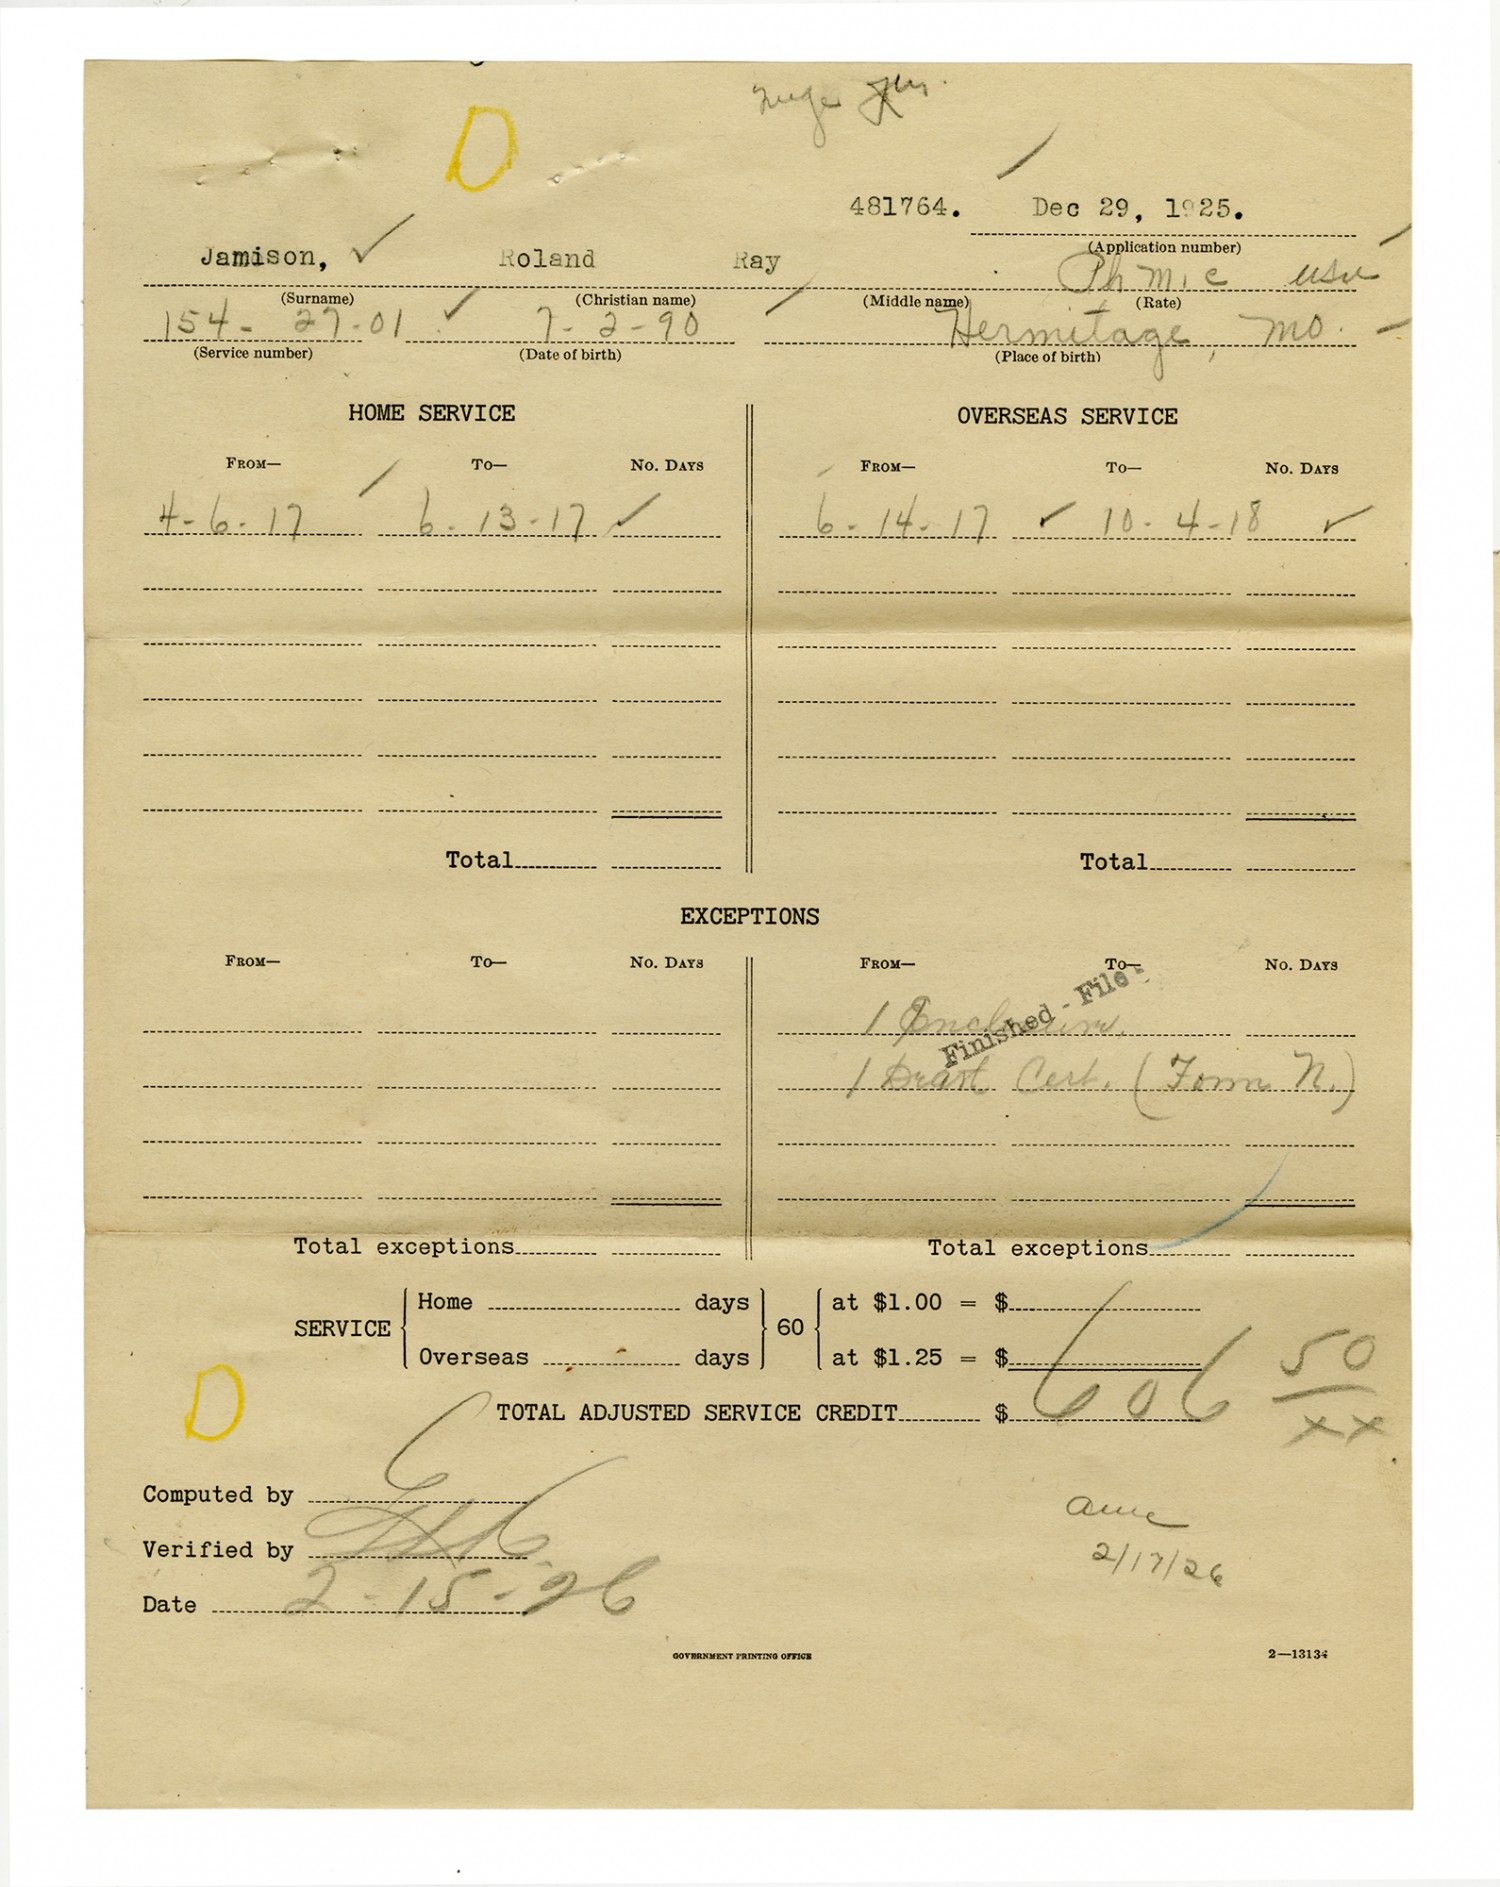 D
481764. Dec 29, 1925.
(Application number)
Jamison, Roland Ray Ph M. 1 c USN
(Surname) (Christian name) (Middle name) (Rate)
154 - 27-01 7 - 2 - 90 Hermitage, Mo.
(Service number) (Date of birth) (Place of birth)
HOME SERVICE OVERSEAS SERVICE
FROM— TO— NO. DAYS FROM— TO— NO. DAYS
4 - 6 - 17 6 - 13 - 17 6 - 14 - 17 10 - 4 - 18
Total Total
EXCEPTIONS
FROM— TO— NO. DAYS FROM— TO— NO. DAYS
Finished - File
1 Enclosure,
1 Cert. (Form N.)
Total exceptions Total exceptions
SERVICE Home days 60 at $1.00 = $
Overseas days at $1.25 = $
TOTAL ADJUSTED SERVICE CREDIT $ 606 50/xx
D
Computed by
Verified by
Date 2 - 15 - 26
2/17/26
GOVERNMENT PRINTING OFFICE 2—13134